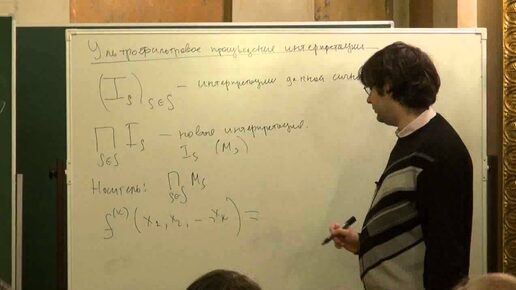 Ультрафильтровое произведение интерпретаций
(I_s)_{s∈S} – интерпретации данной сигн
∏_{s∈S} I_s – новая интерпретация.
I_s (M_s)
Носитель: ∏_{s∈S} M_s
f^{(k)}(x_1, x_2, – , x_k) =